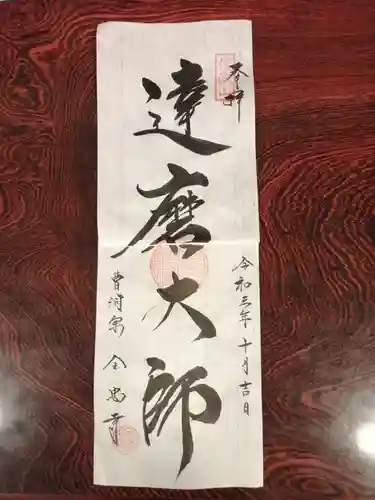 奉拝
令和三年十月吉日
達磨大師
曹洞宗 全忠寺